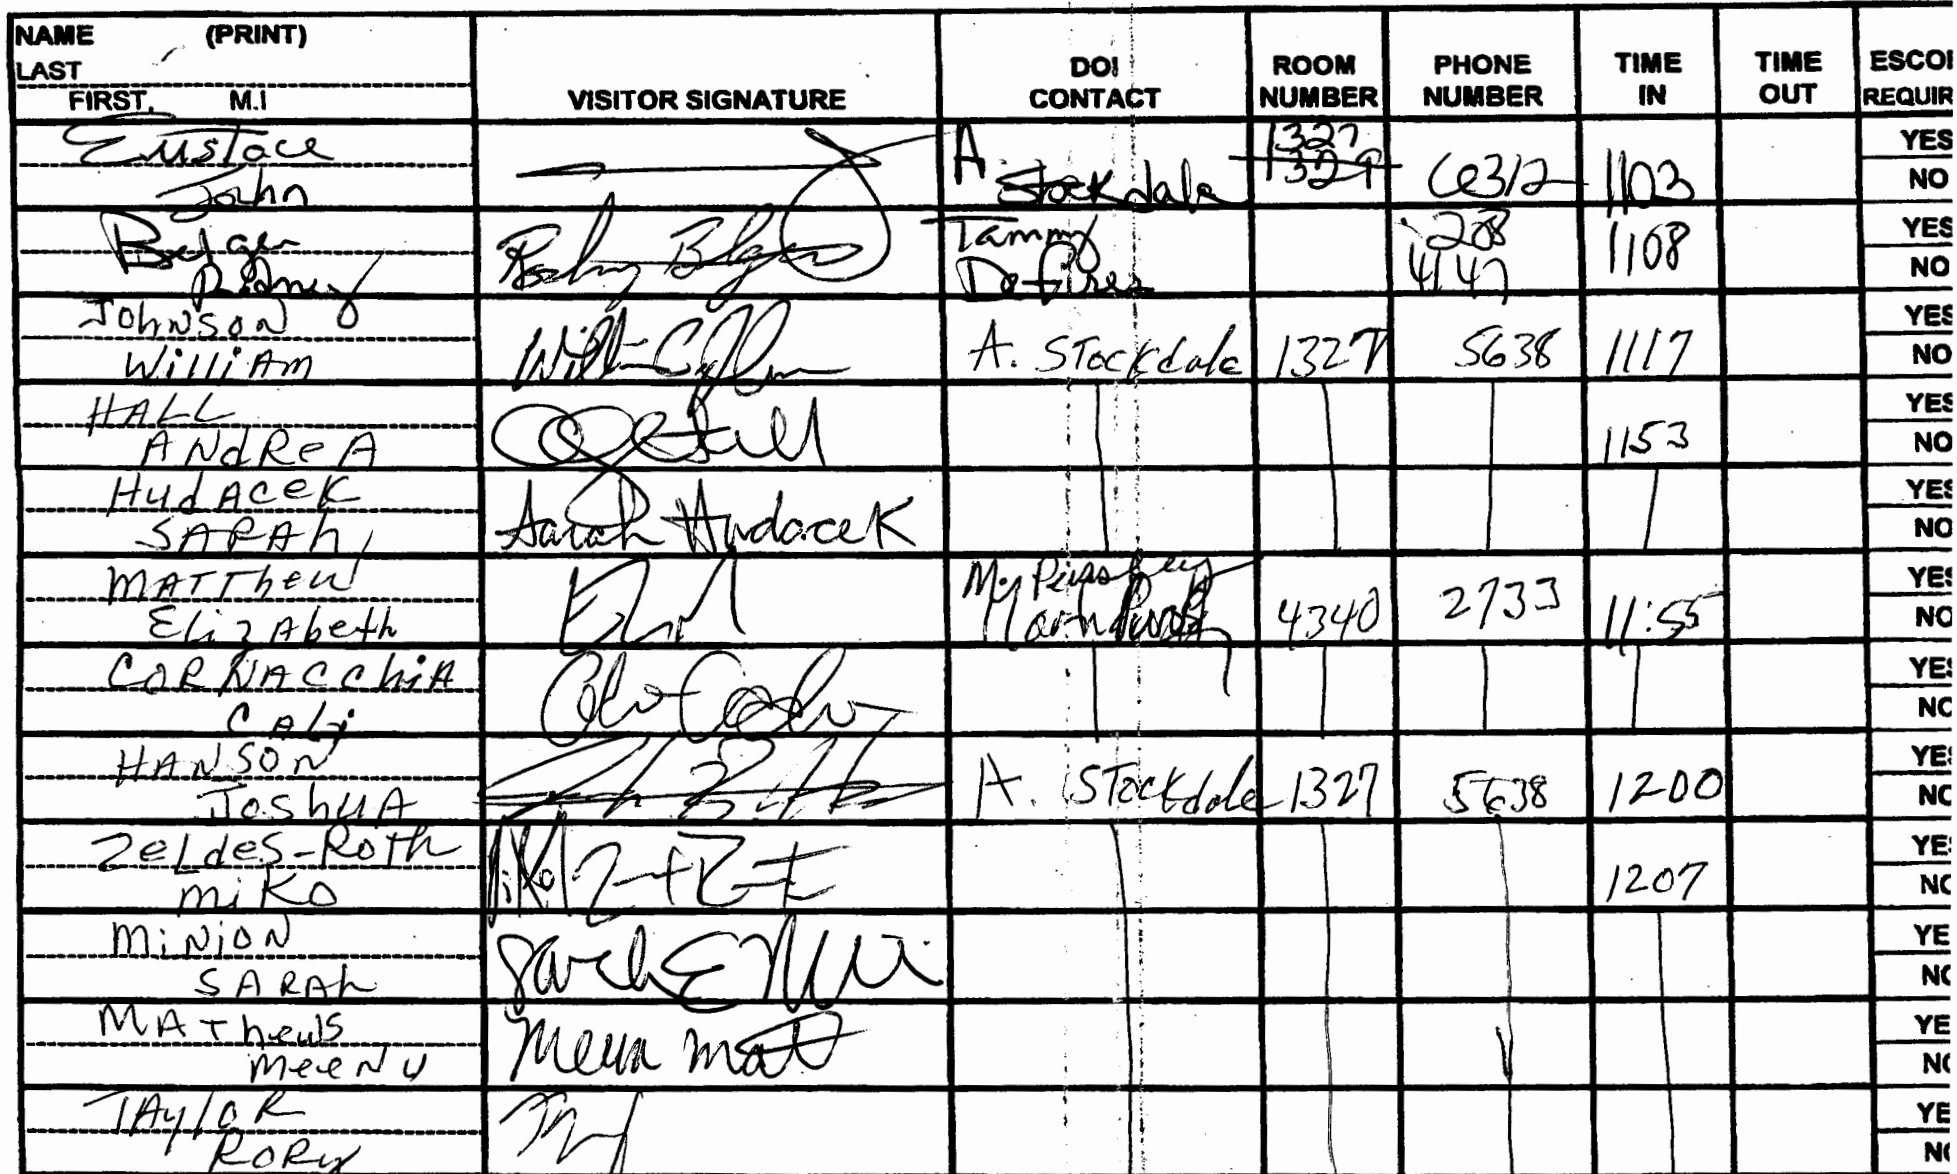 NAME (PRINT)
LAST
FIRST, M.I
VISITOR SIGNATURE
DOI CONTACT
ROOM NUMBER
PHONE NUMBER
TIME IN
TIME OUT
ESCOI
REQUIR
Eustace
John
A. Stockdale
1327
1329
1103
YES
NO
Rodney
Tammy
208
4147
1108
YES
NO
Johnson
William
A. Stockdale
1327
5638
1117
YES
NO
HALL
ANdReA
1153
YES
NO
HudAceK
SARAh
Sarah Hudacek
YES
NO
MATThew
Elizabeth
4340
2733
11:55
YES
NO
CORNACChiA
YES
NO
HANSON
JoshuA
A. Stockdale
1327
5638
1200
YES
NO
ZeLdes-Roth
miKo
1207
YES
NO
MiNioN
SARAh
YE
NO
MAThews
MeeNu
YE
NO
TAyloR
RoRy
YE
NO